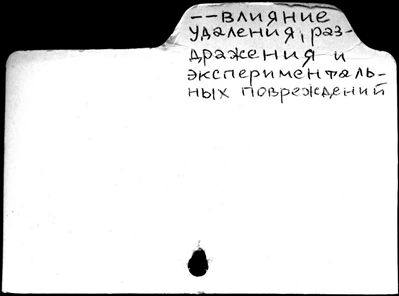 --влияние
удаления, раз-
дражения и
эксперименталь-
ных повреждений